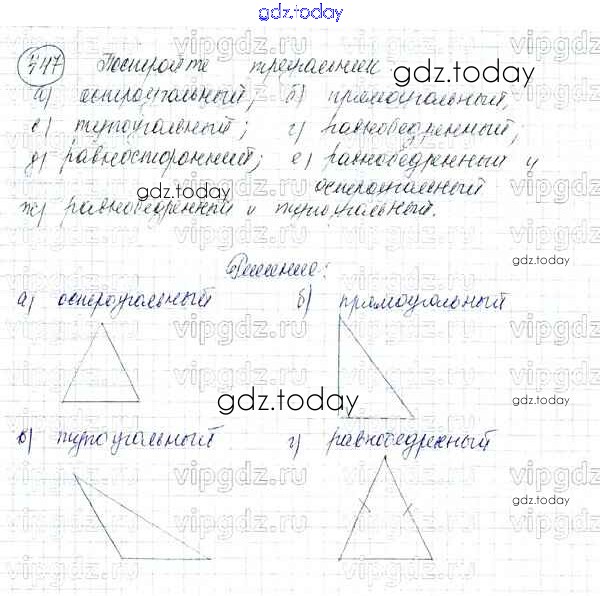 gdz.today
447 Постройте треугольник
gdz.today
а) остроугольный; б) прямоугольный;
в) тупоугольный; г) равнобедренный;
д) равносторонний; е) равнобедренный и
остроугольный
gdz.today
ж) равнобедренный и тупоугольный.
gdz.today
Решение:
а) остроугольный б) прямоугольный
gdz.today
в) тупоугольный г) равнобедренный
gdz.today
vipgdz.ru